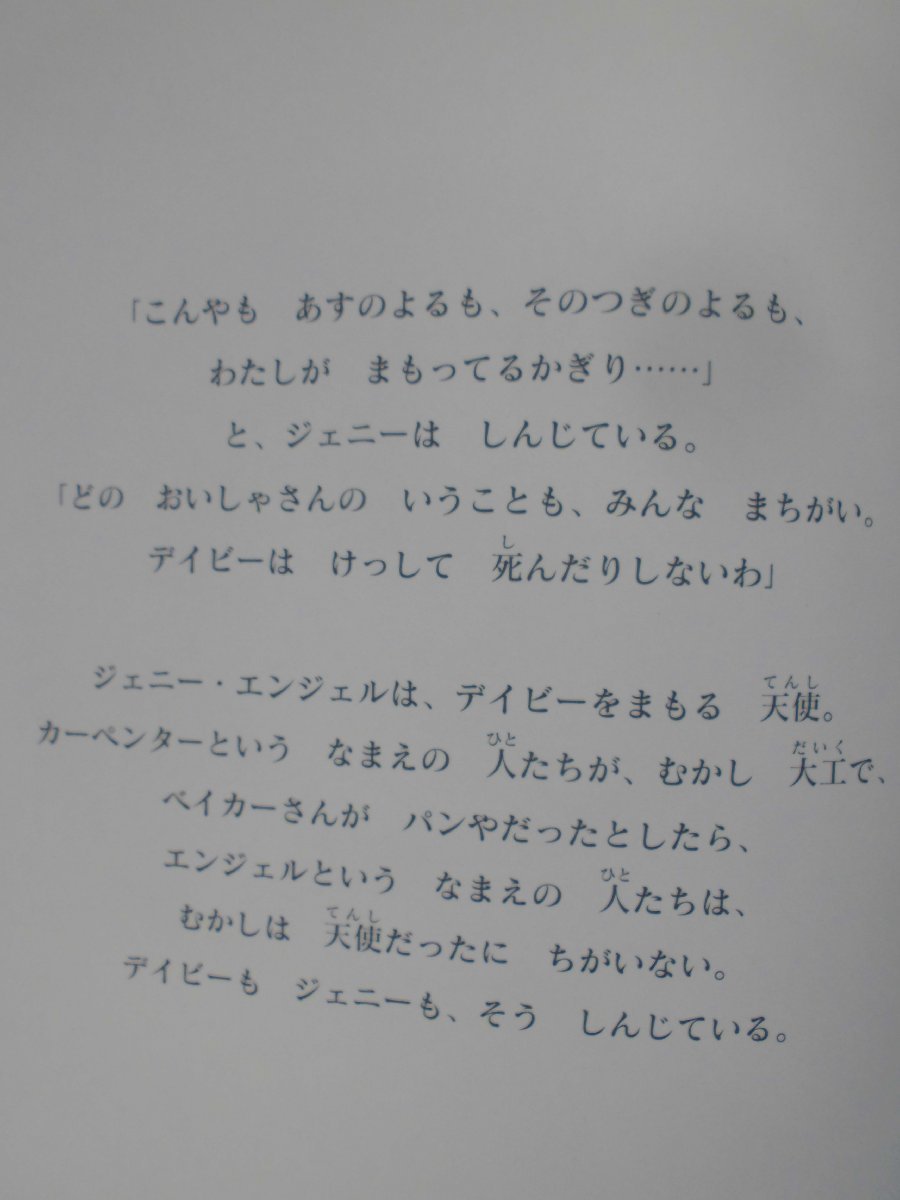 「こんやも　あすのよるも、そのつぎのよるも、
わたしが　まもってるかぎり……」
と、ジェニーは　しんじている。
「どの　おいしゃさんの　いうことも、みんな　まちがい。
デイビーは　けっして　死んだりしないわ」
ジェニー・エンジェルは、デイビーをまもる　天使。
カーペンターという　なまえの　人たちが、むかし　大工で、
ベイカーさんが　パンやだったとしたら、
エンジェルという　なまえの　人たちは、
むかしは　天使だったに　ちがいない。
デイビーも　ジェニーも、そう　しんじている。